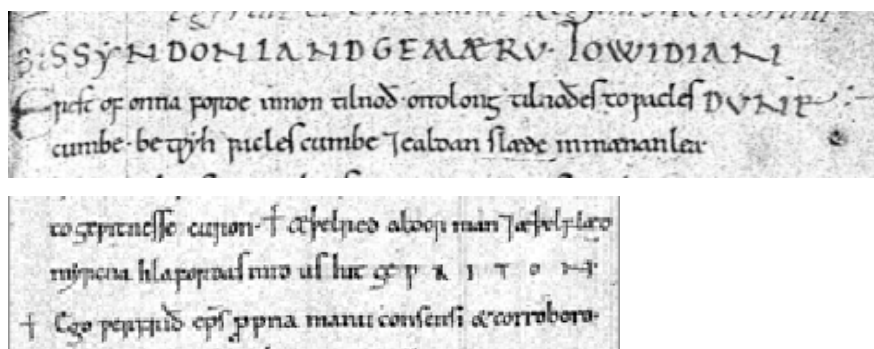 ÐiS SYNDON LANDGEMÆRV· TO WIDIANI
Erest of onna forde innon tilnoð· ondlong tilnodes to ƿicles DVNE :-
cumbe· be tƿyh ƿicles cumbe ⁊ caldan slæde in mænan lea·
to geƿitnesse curon· † æþelred aldorman ⁊ æþelflæd
myrcna hlafordas mid us hit geƿRITON
† Ego ƿerfrið ep̅s ꝓpria manu consensi & corroboro·